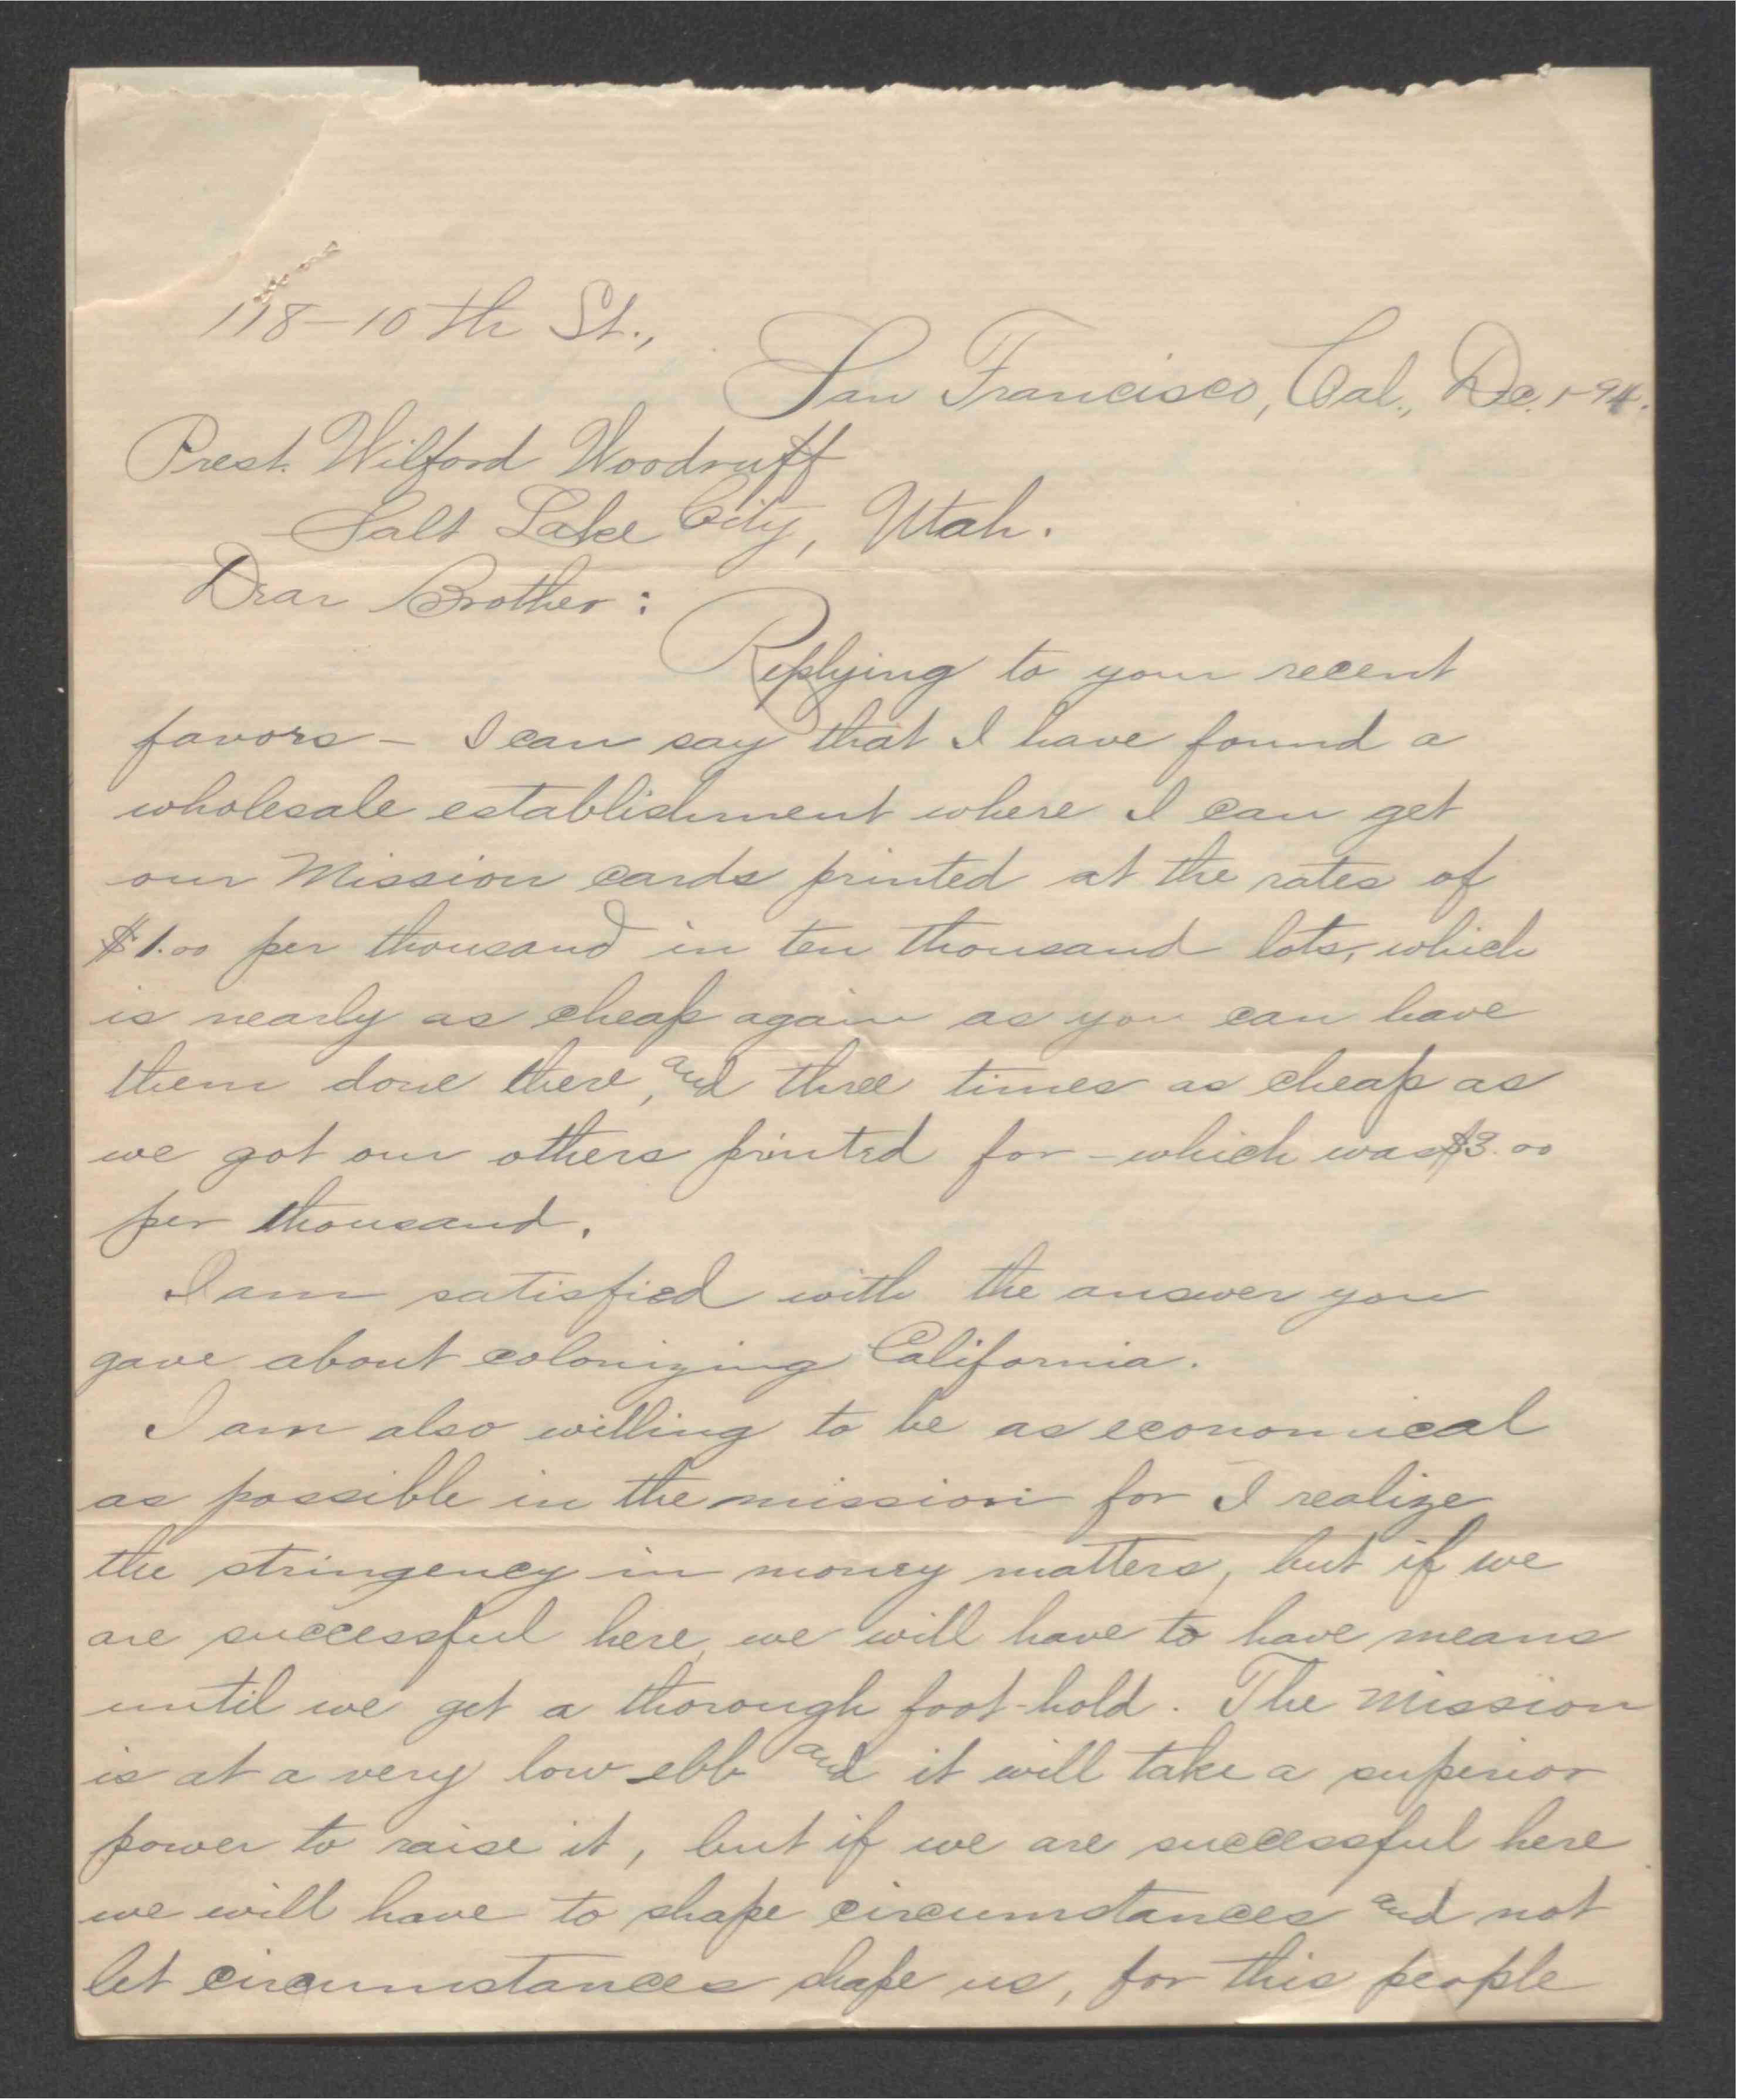 118-10th St.,
San Francisco, Cal., Dec. 1-94.
Prest. Wilford Woodruff
Salt Lake City, Utah.
Dear Brother:
Replying to your recent
favors - I can say that I have found a
wholesale establishment where I can get
our Mission cards printed at the rates of
$1.00 per thousand in ten thousand lots, which
is nearly as cheap again as you can have
them done there, and three times as cheap as
we got our others printed for - which was $3.00
per thousand.
I am satisfied with the answer you
gave about colonizing California.
I am also willing to be as economical
as possible in the mission for I realize
the stringency in money matters, but if we
are successful here, we will have to have means
until we get a thorough foot-hold. The Mission
is at a very low ebb and it will take a superior
power to raise it, but if we are successful here
we will have to shape circumstances and not
let circumstances shape us, for this people